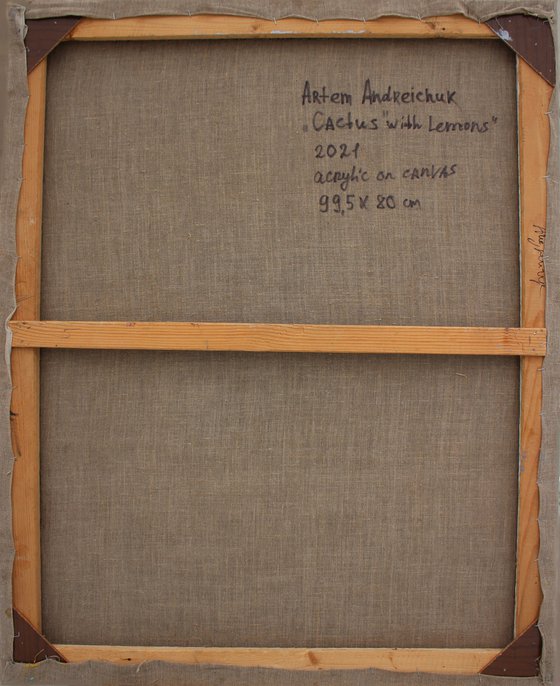 Artem Andreichuk
„Cactus "with Lemons"
2021
acrylic on canvas
99,5 x 80 cm